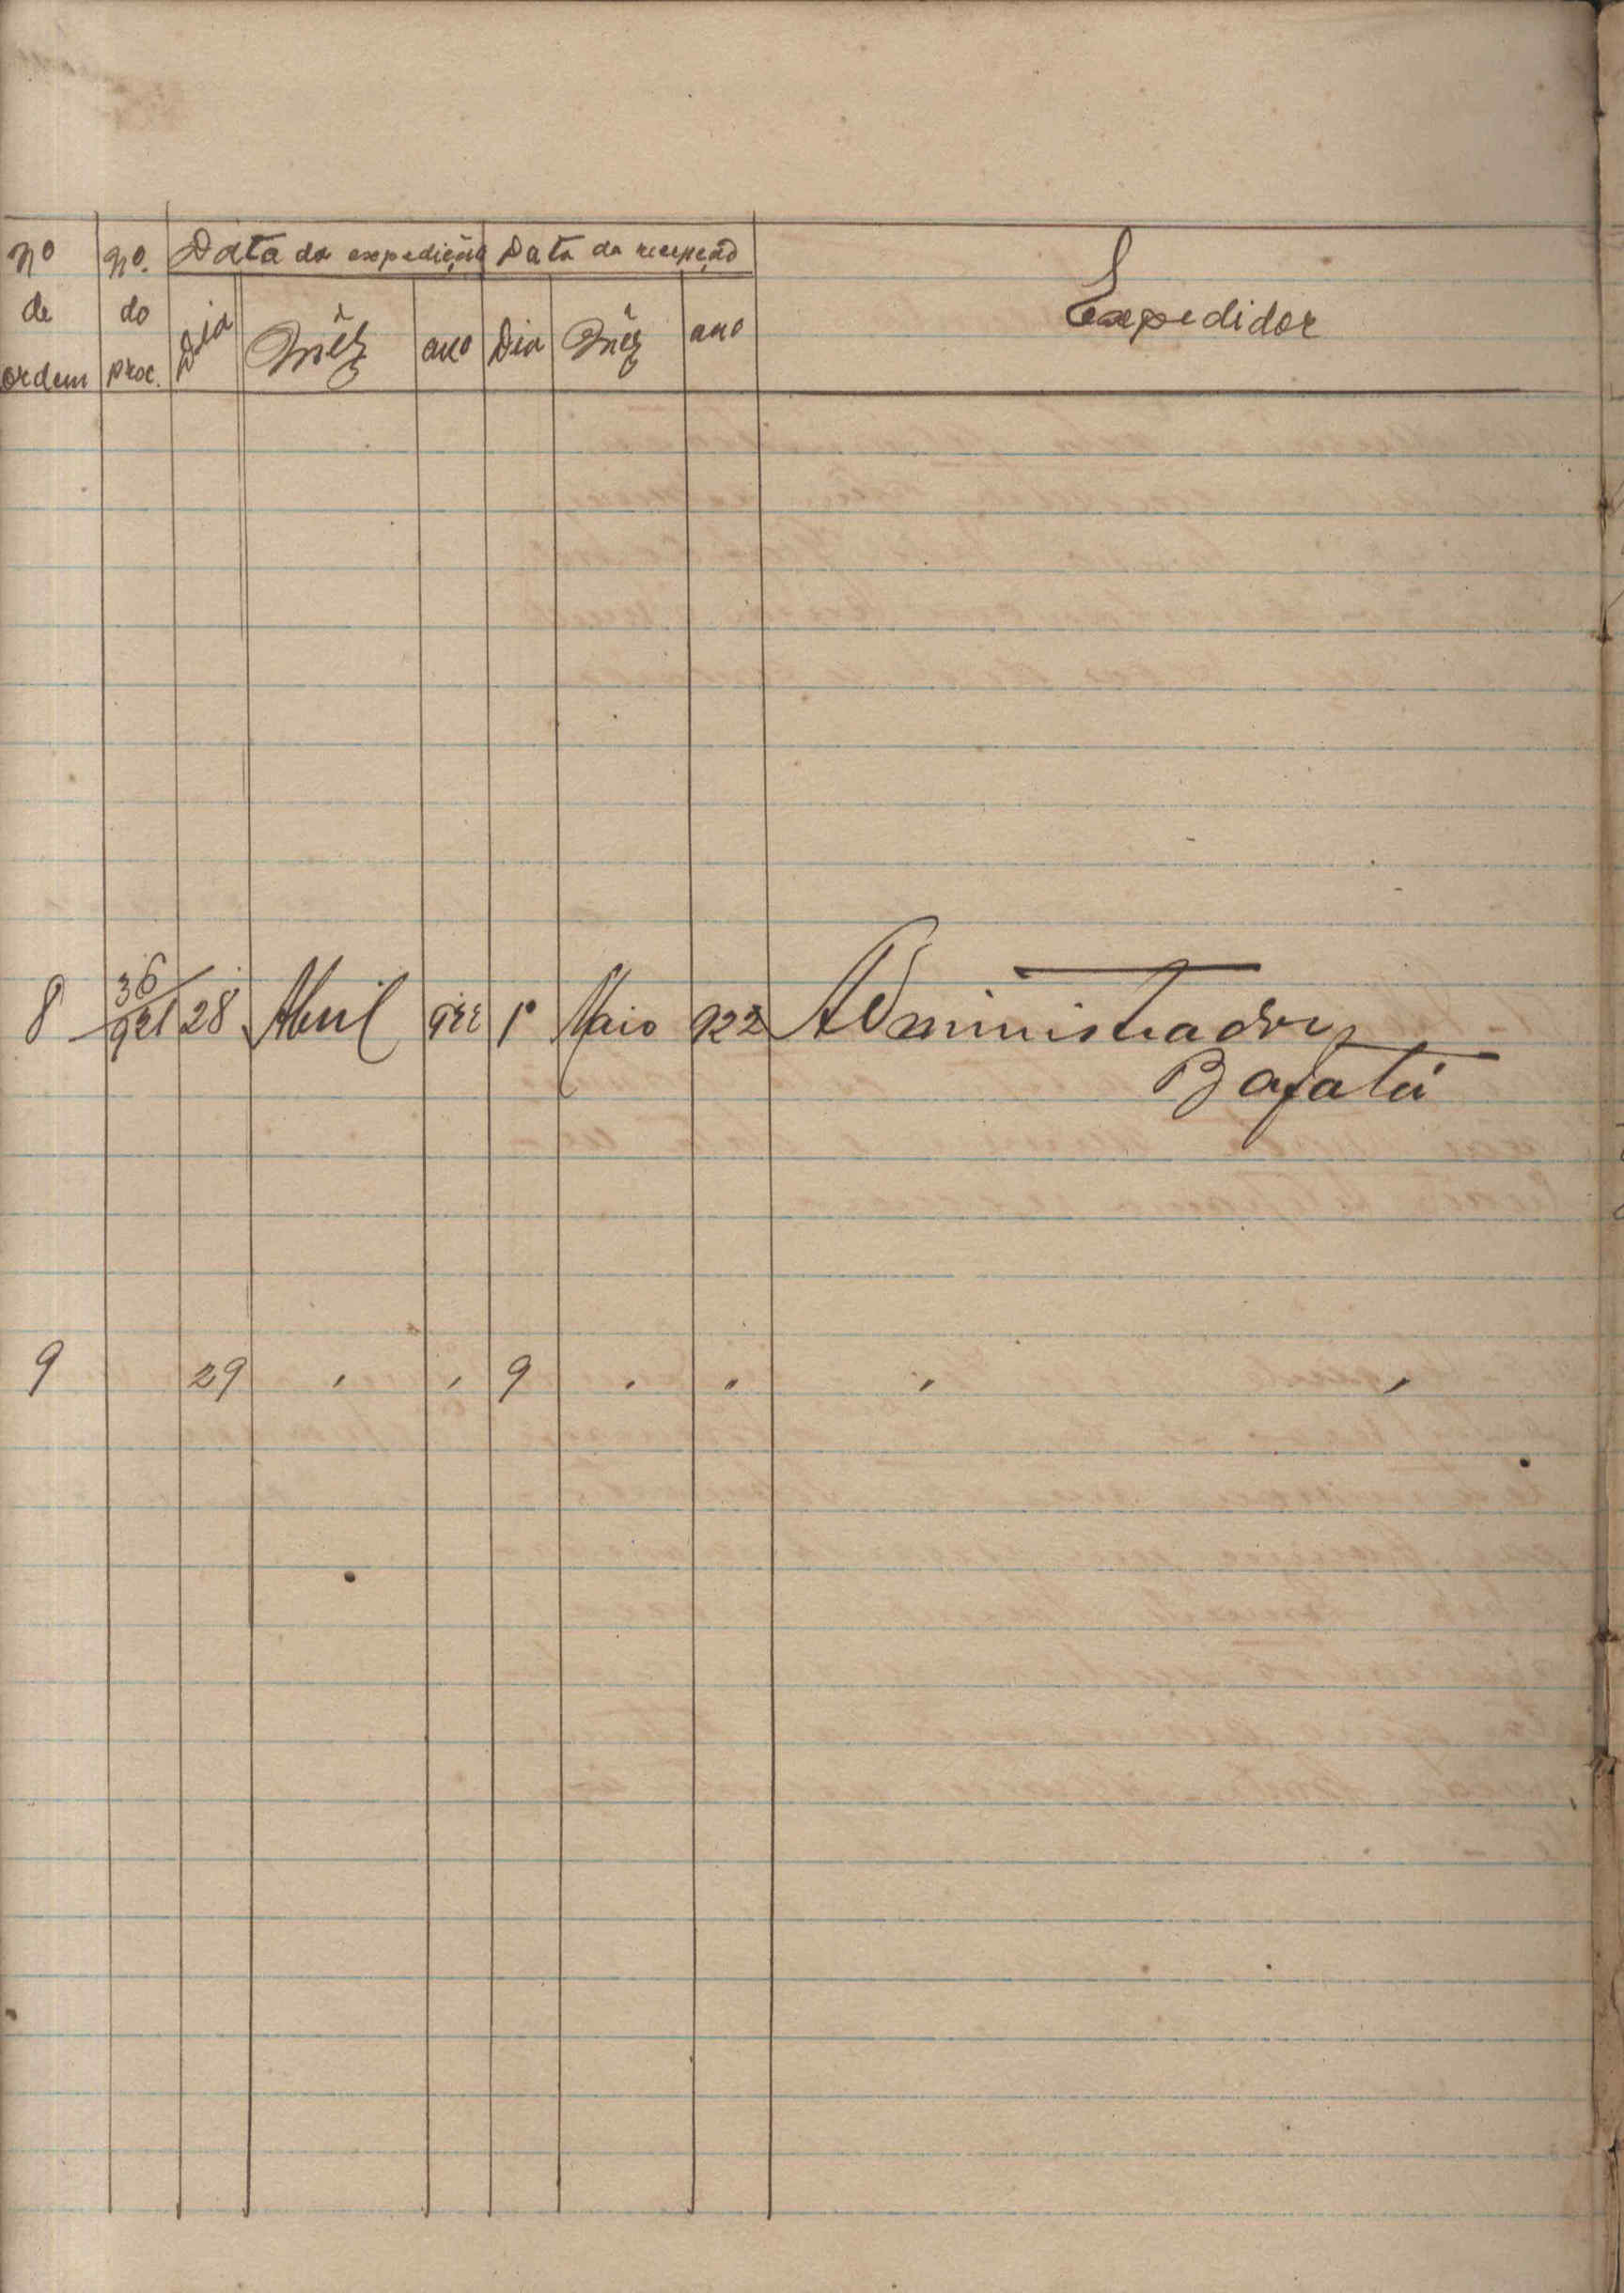 Nº de ordem
Nº. do proc.
Data da expedição
Data da recepção
Dia Mêz ano Dia Mêz ano
Expedidor
8 36/921 28 Abril 922 1º Maio 922 Administrador
Bafatá
9 29 " " 9 " " " "